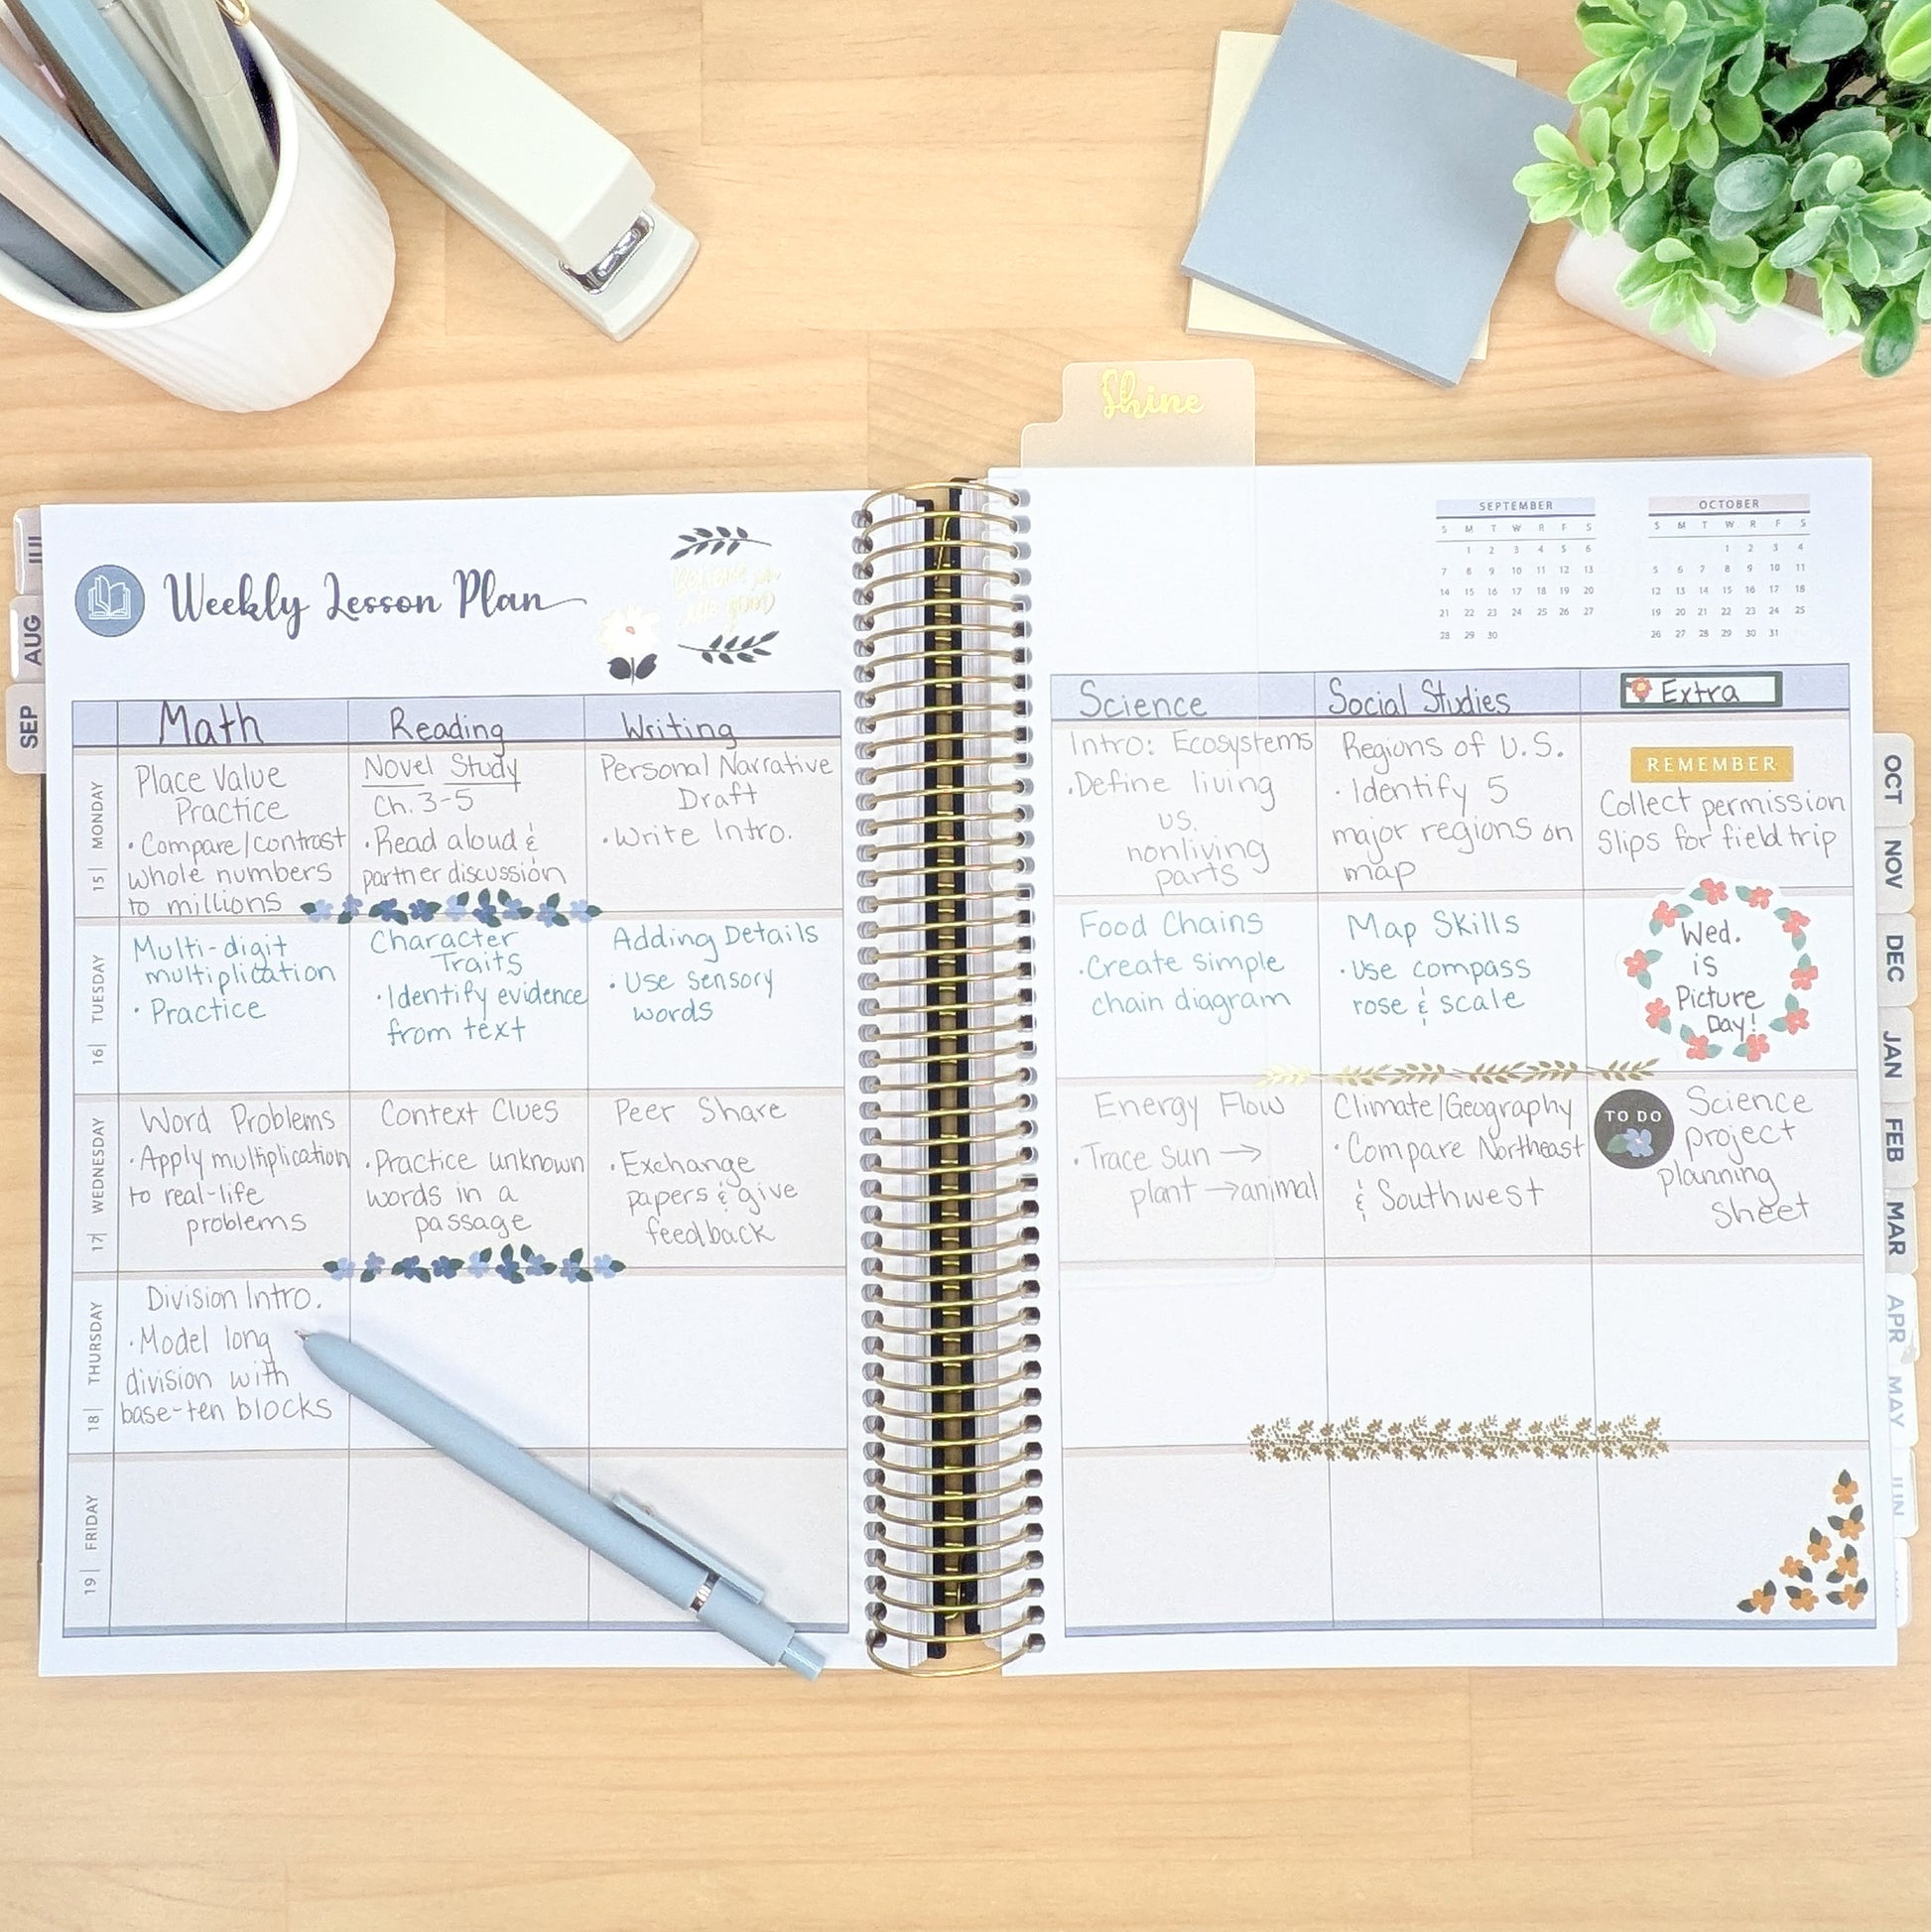 Shine
JUL
AUG
SEP
Weekly Lesson Plan
Math
Reading
Writing
15| MONDAY
Place Value
Practice
• Compare/contrast
whole numbers
to millions
Novel Study
Ch. 3-5
• Read aloud &
partner discussion
Personal Narrative
Draft
• Write Intro.
16| TUESDAY
Multi-digit
multiplication
• Practice
Character
Traits
• Identify evidence
from text
Adding Details
• Use sensory
words
17| WEDNESDAY
Word Problems
• Apply multiplication
to real-life
problems
Context Clues
• Practice unknown
words in a
passage
Peer Share
• Exchange
papers & give
feedback
18| THURSDAY
Division Intro.
• Model long
division with
base-ten blocks
19| FRIDAY
SEPTEMBER
S M T W R F S
1 2 3 4 5 6
7 8 9 10 11 12 13
14 15 16 17 18 19 20
21 22 23 24 25 26 27
28 29 30
OCTOBER
S M T W R F S
1 2 3 4
5 6 7 8 9 10 11
12 13 14 15 16 17 18
19 20 21 22 23 24 25
26 27 28 29 30 31
Science
Social Studies
Extra
Intro: Ecosystems
• Define living
vs.
nonliving
parts
Regions of U.S.
• Identify 5
major regions on
map
REMEMBER
Collect permission
Slips for field trip
Food Chains
• Create simple
chain diagram
Map Skills
• Use compass
rose & scale
Wed.
is
Picture
Day!
Energy Flow
• Trace sun →
plant → animal
Climate/Geography
• Compare Northeast
& Southwest
TO DO
Science
project
planning
sheet
OCT
NOV
DEC
JAN
FEB
MAR
APR
MAY
JUN